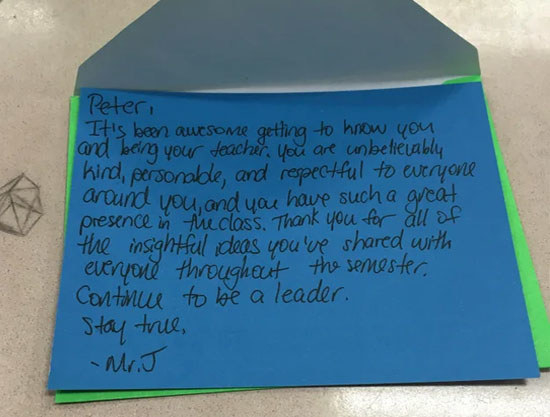 Peter,
It's been awesome getting to know you
and being your teacher. You are unbelievably
kind, personable, and respectful to everyone
around you, and you have such a great
presence in the class. Thank you for all of
the insightful ideas you've shared with
everyone throughout the semester.
Continue to be a leader.
Stay true,
-Mr. J